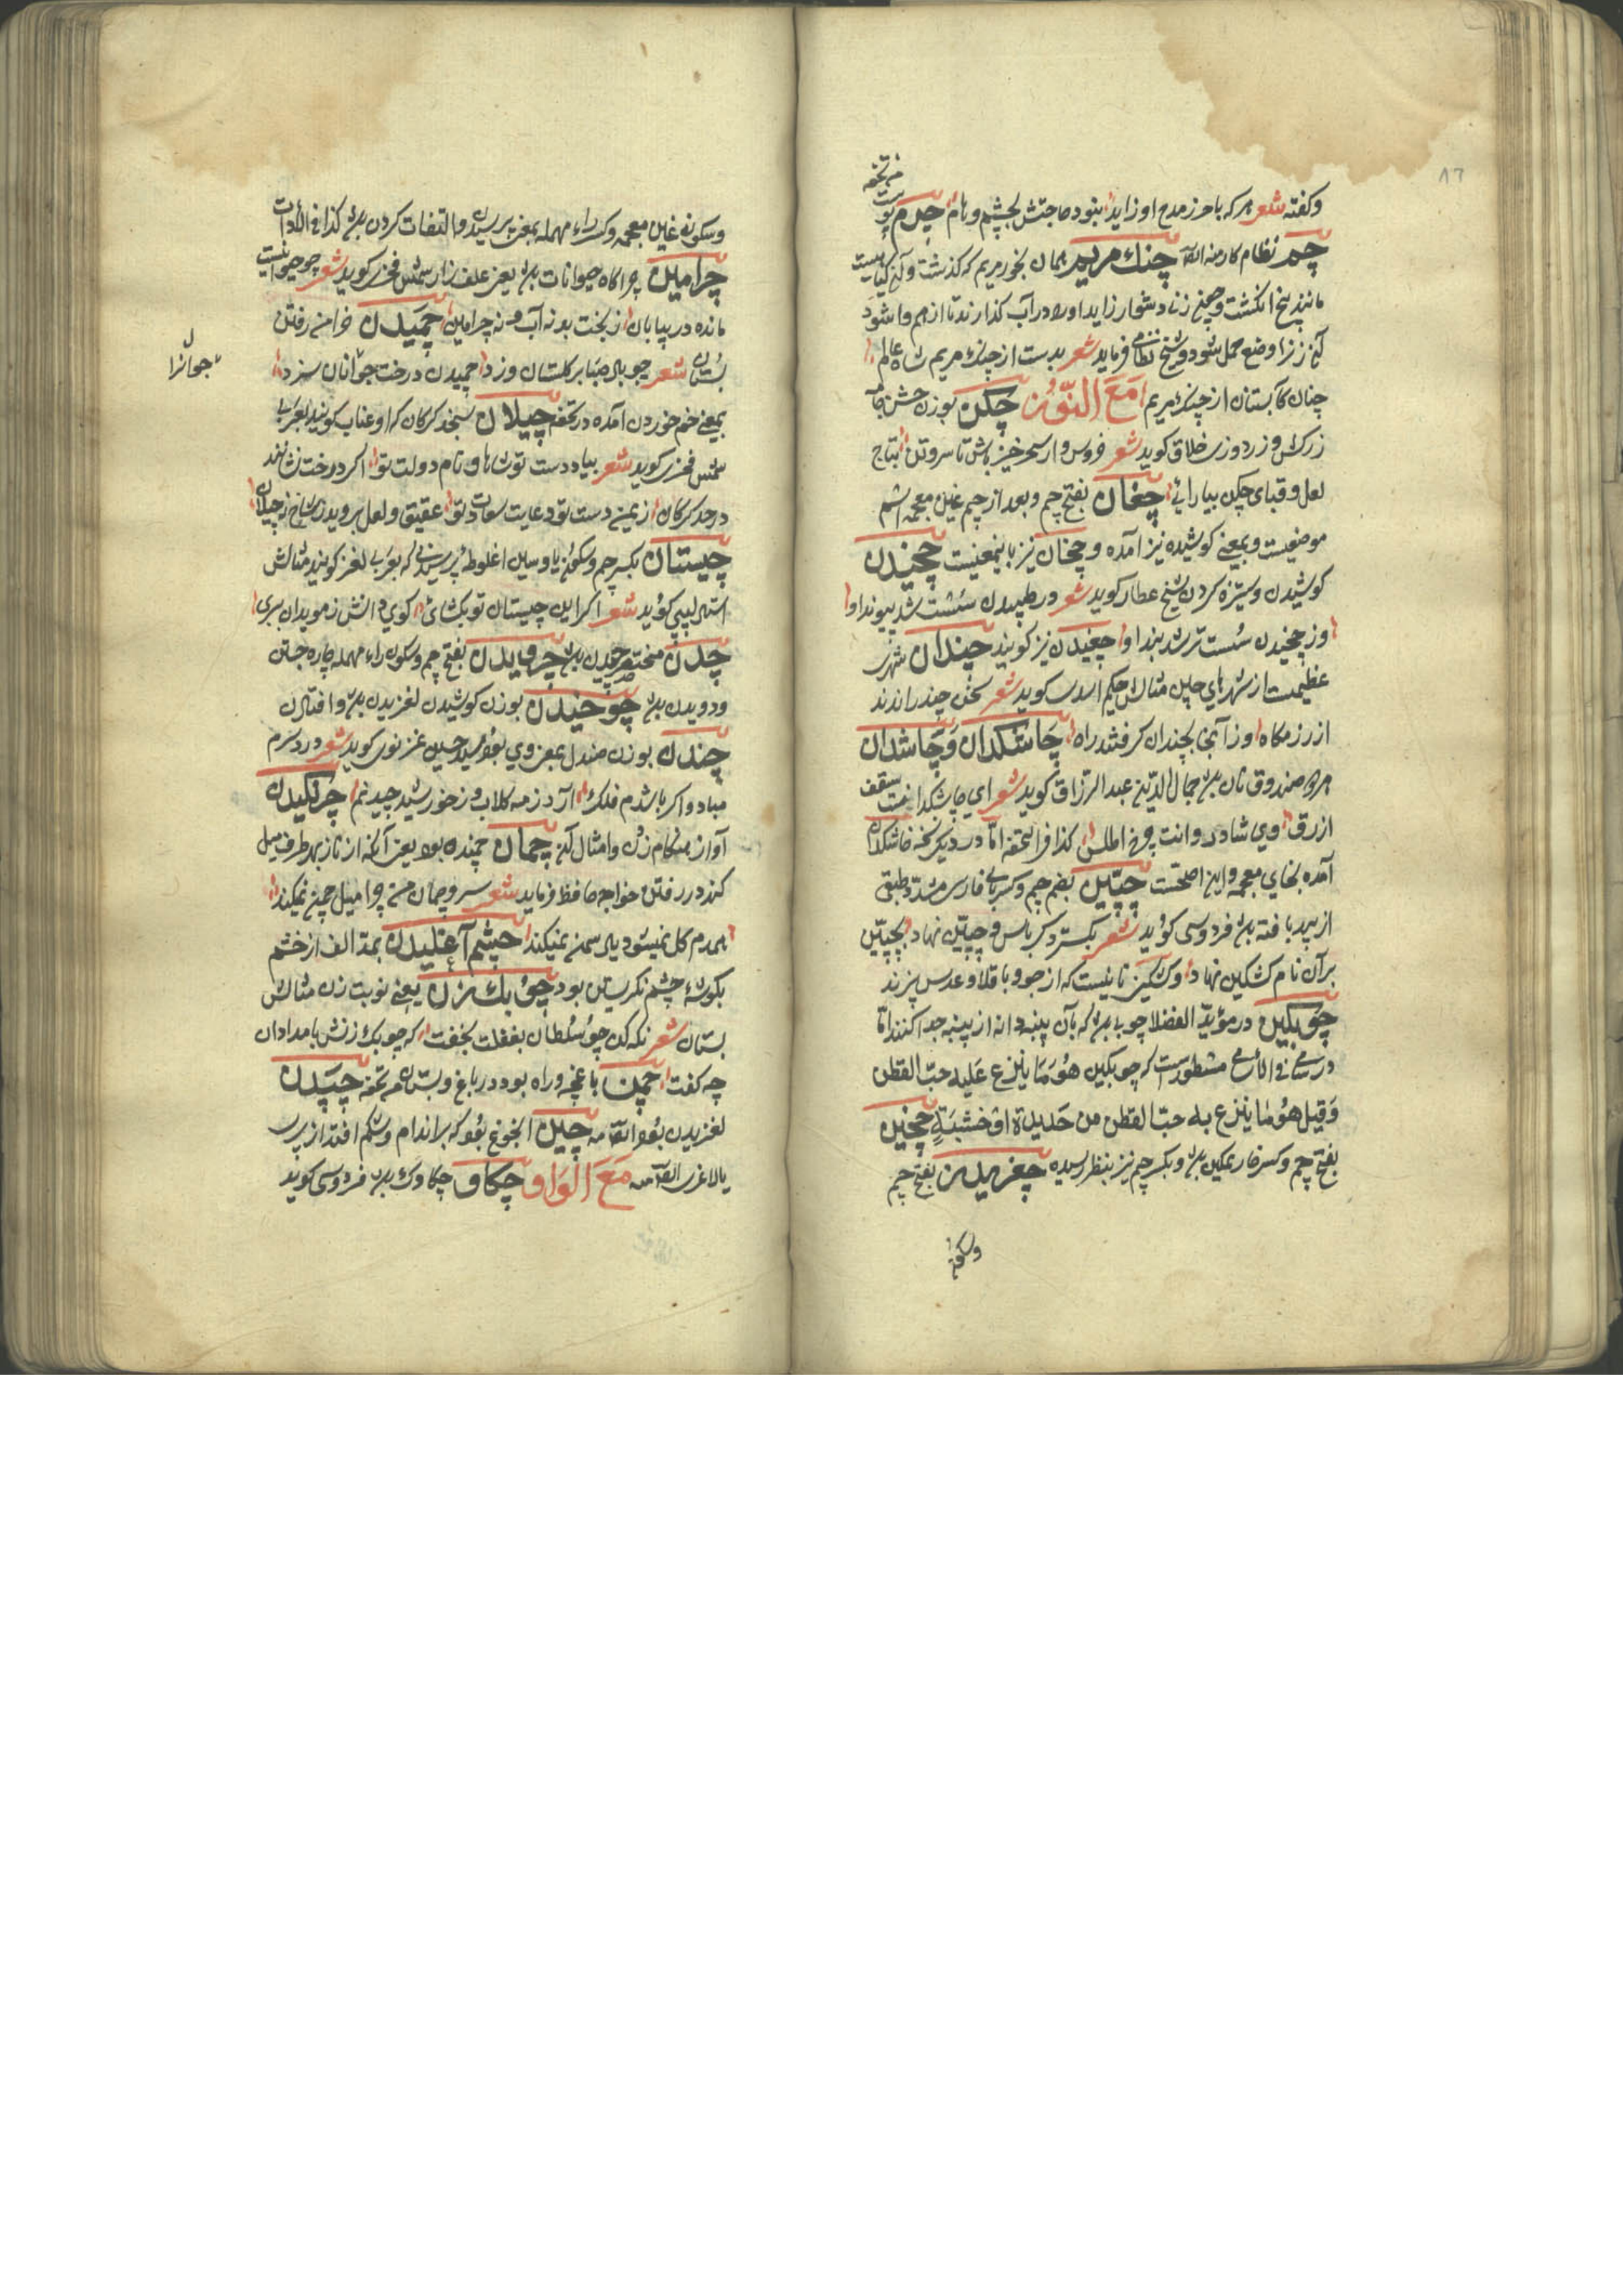 ٨٦
وكفته شعر هركه باحرز مدح او زايد بنود حاجتش بچشم و نام چرم پوست
منه تحفه
چم نظام كار منه القآ چنك مريم همان بخور مريم كه كذشت و آن كياهيست
مانند پنج انكشت وچون زنا دشوار زايد اورا در آب كذارند تا از هم وا شود
آن زنرا وضع حمل شود وشيخ نظامى فرمايد شعر بدست از چنك مريم شاه عالم
چنان كآبستنان از چنك مريم مع النّون چكن بوزن حسن جامهٔ
زركش و زردوزى خلاق كويد شعر خروس وار سحر خيز باش تا سر و تن بتاج
لعل و قباى چكن بيارائى چغان بفتح چم وبعد از چم غين معجمه اسم
موضعيست وبمعنى كوشيده نيز آمده و چخان نيز باينمعنيست چخيدن
كوشيدن وستيزه كردن شيخ عطار كويد شعر در طپيدن سست شد پيوند او
وز چخيدن سست تر شد بند او چغيدن نيز كويند چندان شهرى
عظيمست از شهرهاى چين مثالش حكيم اسدى كويد شعر سخن چند راندند
از رزمكاه وز آنجا بچندان كرفتند راه چاشكدان وچاشدان
هردو صندوق نان بود جمال الدّين عبد الرزاق كويد شعر اى چاشكدانت سقف
ازرق وى شادروانت چرخ اطلس كذا فى التحفه امّا در ديكر نسخه خاشكدان
آمده بخاى معجمه واين اصحّست چپّين بضم چم وكسر باى فارسى مشدّد طبق
از بيد بافته بود فردوسى كويد شعر بكسترد كرباس و چپّين نهاد بچپّين
بر آن نام كشكين نهاد و كشكين نانيست كه از جو و باقلا و عدس پزند
چوبكين در مؤيّد الفضلا چوبى بود كه بآن پنبه دانه از پنبه جدا كنند امّا
در سامى فى الاسامى مسطورست كه چوبكين هو ما ينزع عليه حبّ القطن
وقيل هو ما ينزع به حبّ القطن من حديدة او خشبة چخين
بفتح چم وكسر خا ريمكين بود و بكسر چم نيز بنظر رسيده چغريدن بفتح چم
وسكون
وسكون غين معجمه وكسر راء مهمله بمعنى پرسيدن والتفات كردن بود كذا فى الأدات
چرامين چراكاه حيوانات بود يعنى علف زار شمس فخرى كويد شعر چو حيوانيست
مانده در بيابان ز بختت بود نه آب و نه چرامين چميدن خرامن رفتن
بستان شعر چو باد صبا بر كلستان وزد چميدن درخت جوانرا سزد
جوانرا
بمعنى خم خوردن آمده در تحفه چيلان سنجد كركان كه او عناب كويند بعربى
شمس فخرى كويد شعر بياد دست تو شاها و نام دولت تو اكر درخت نشانند
در حد كركان ز يمن دست تو دعايت سعادت تو عقيق و لعل برويد ز شاخ نه چيلان
چيستان بكسر چم وسكون يا وسين اغلوطه پرسيدنى كه بعربى لغز كويند مثالش
استاد لبيبى كويد شعر اكر اين چيستان تو بكشائى كوى دانش ز موبدان ببرى
چدن مختصر چيدن بود چرويدن بفتح چم وسكون راء مهمله چاره جستن
ودويدن بود چوخيدن بوزن كوشيدن لغزيدن بود وافتادن
چندن بوزن صندل بمعنى وى بود سيد حسين غزنوى كويد شعر درد سرم
مباد و اكر باشدم فلك آرد ز مه كلاب و ز خورشيد چندنم چرنكيدن
آواز هنكام زدن و امثال آن چمان چمنده بود يعنى آنكه از ناز بهر طرف ميل
كند در رفتن خواجه حافظ فرمايد شعر سرو چمان من چرا ميل چمن نميكند
همدم كل نميشود ياد سمن نميكند چشم آغليدن بمد الف از خشم
بكوشهٔ چشم نكريستن بود چوبك زن يعنى نوبت زن مثالش
بستان شعر نكه كن چو سلطان بغفلت بخفت كه چوبك زنش بامدادان
چه كفت چمن باغچه و راه بود در باغ و بستان منه تحفه چپيدن
لغزيدن بود القآ منه چين انجوغ بود كه بر اندام و شكم افتد از پيرى
يا لاغرى القآ منه مع الواو چكاو چكاوك بود فردوسى كويد